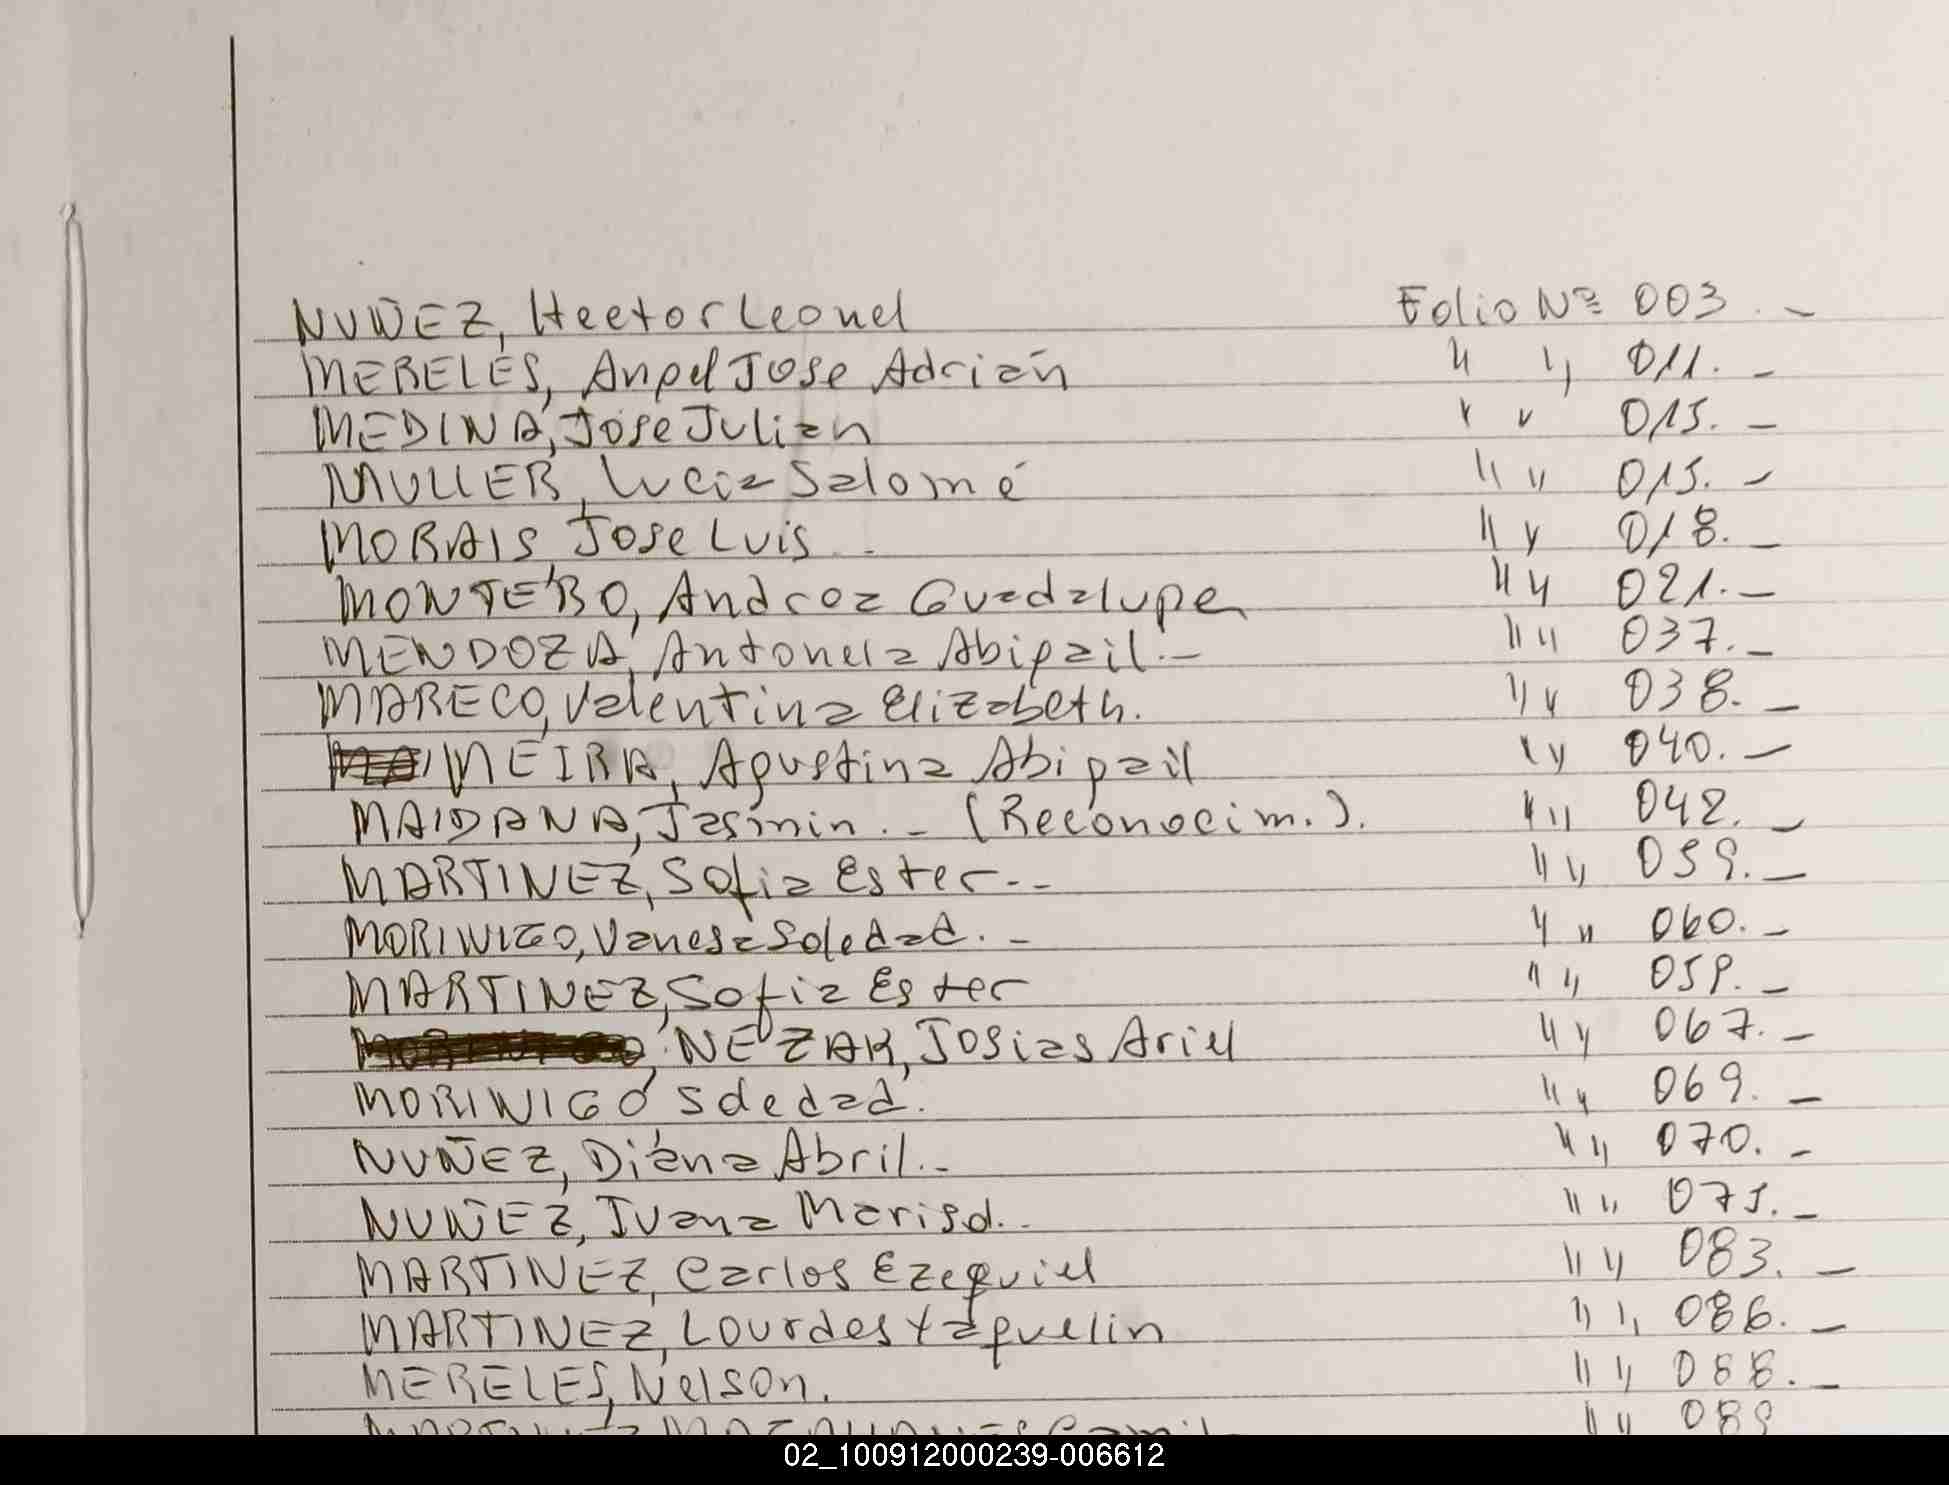 NUÑEZ, Hector Leonel Folio Nº 003. -
MERELES, Angel Jose Adrián " " 011. -
MEDINA, Jose Julian " " 015. -
MULLER, Lucia Salomé " " 015. -
MORAIS, Jose Luis - " " 018. -
MONTERO, Andrea Guadalupe " " 021. -
MENDOZA, Antonela Abigail. - " " 037. -
MARECO, Valentina Elizabeth. " " 038. -
MEIRA, Agustina Abigail " " 040. -
MAIDANA, Jasmin. - (Reconocim.). " " 042. -
MARTINEZ, Sofia Ester. - " " 059. -
MORINIGO, Vanesa Soledad. - " " 060. -
MARTINEZ, Sofia Ester " " 059. -
NEZAR, Josias Ariel " " 067. -
MORINIGO Soledad. " " 069. -
NUÑEZ, Diana Abril. - " " 070. -
NUÑEZ, Juana Marisol. - " " 075. -
MARTINEZ, Carlos Ezequiel " " 083. -
MARTINEZ, Lourdes Yaquelin " " 086. -
MERELES, Nelson. " " 088. -
" " 089
02_100912000239-006612